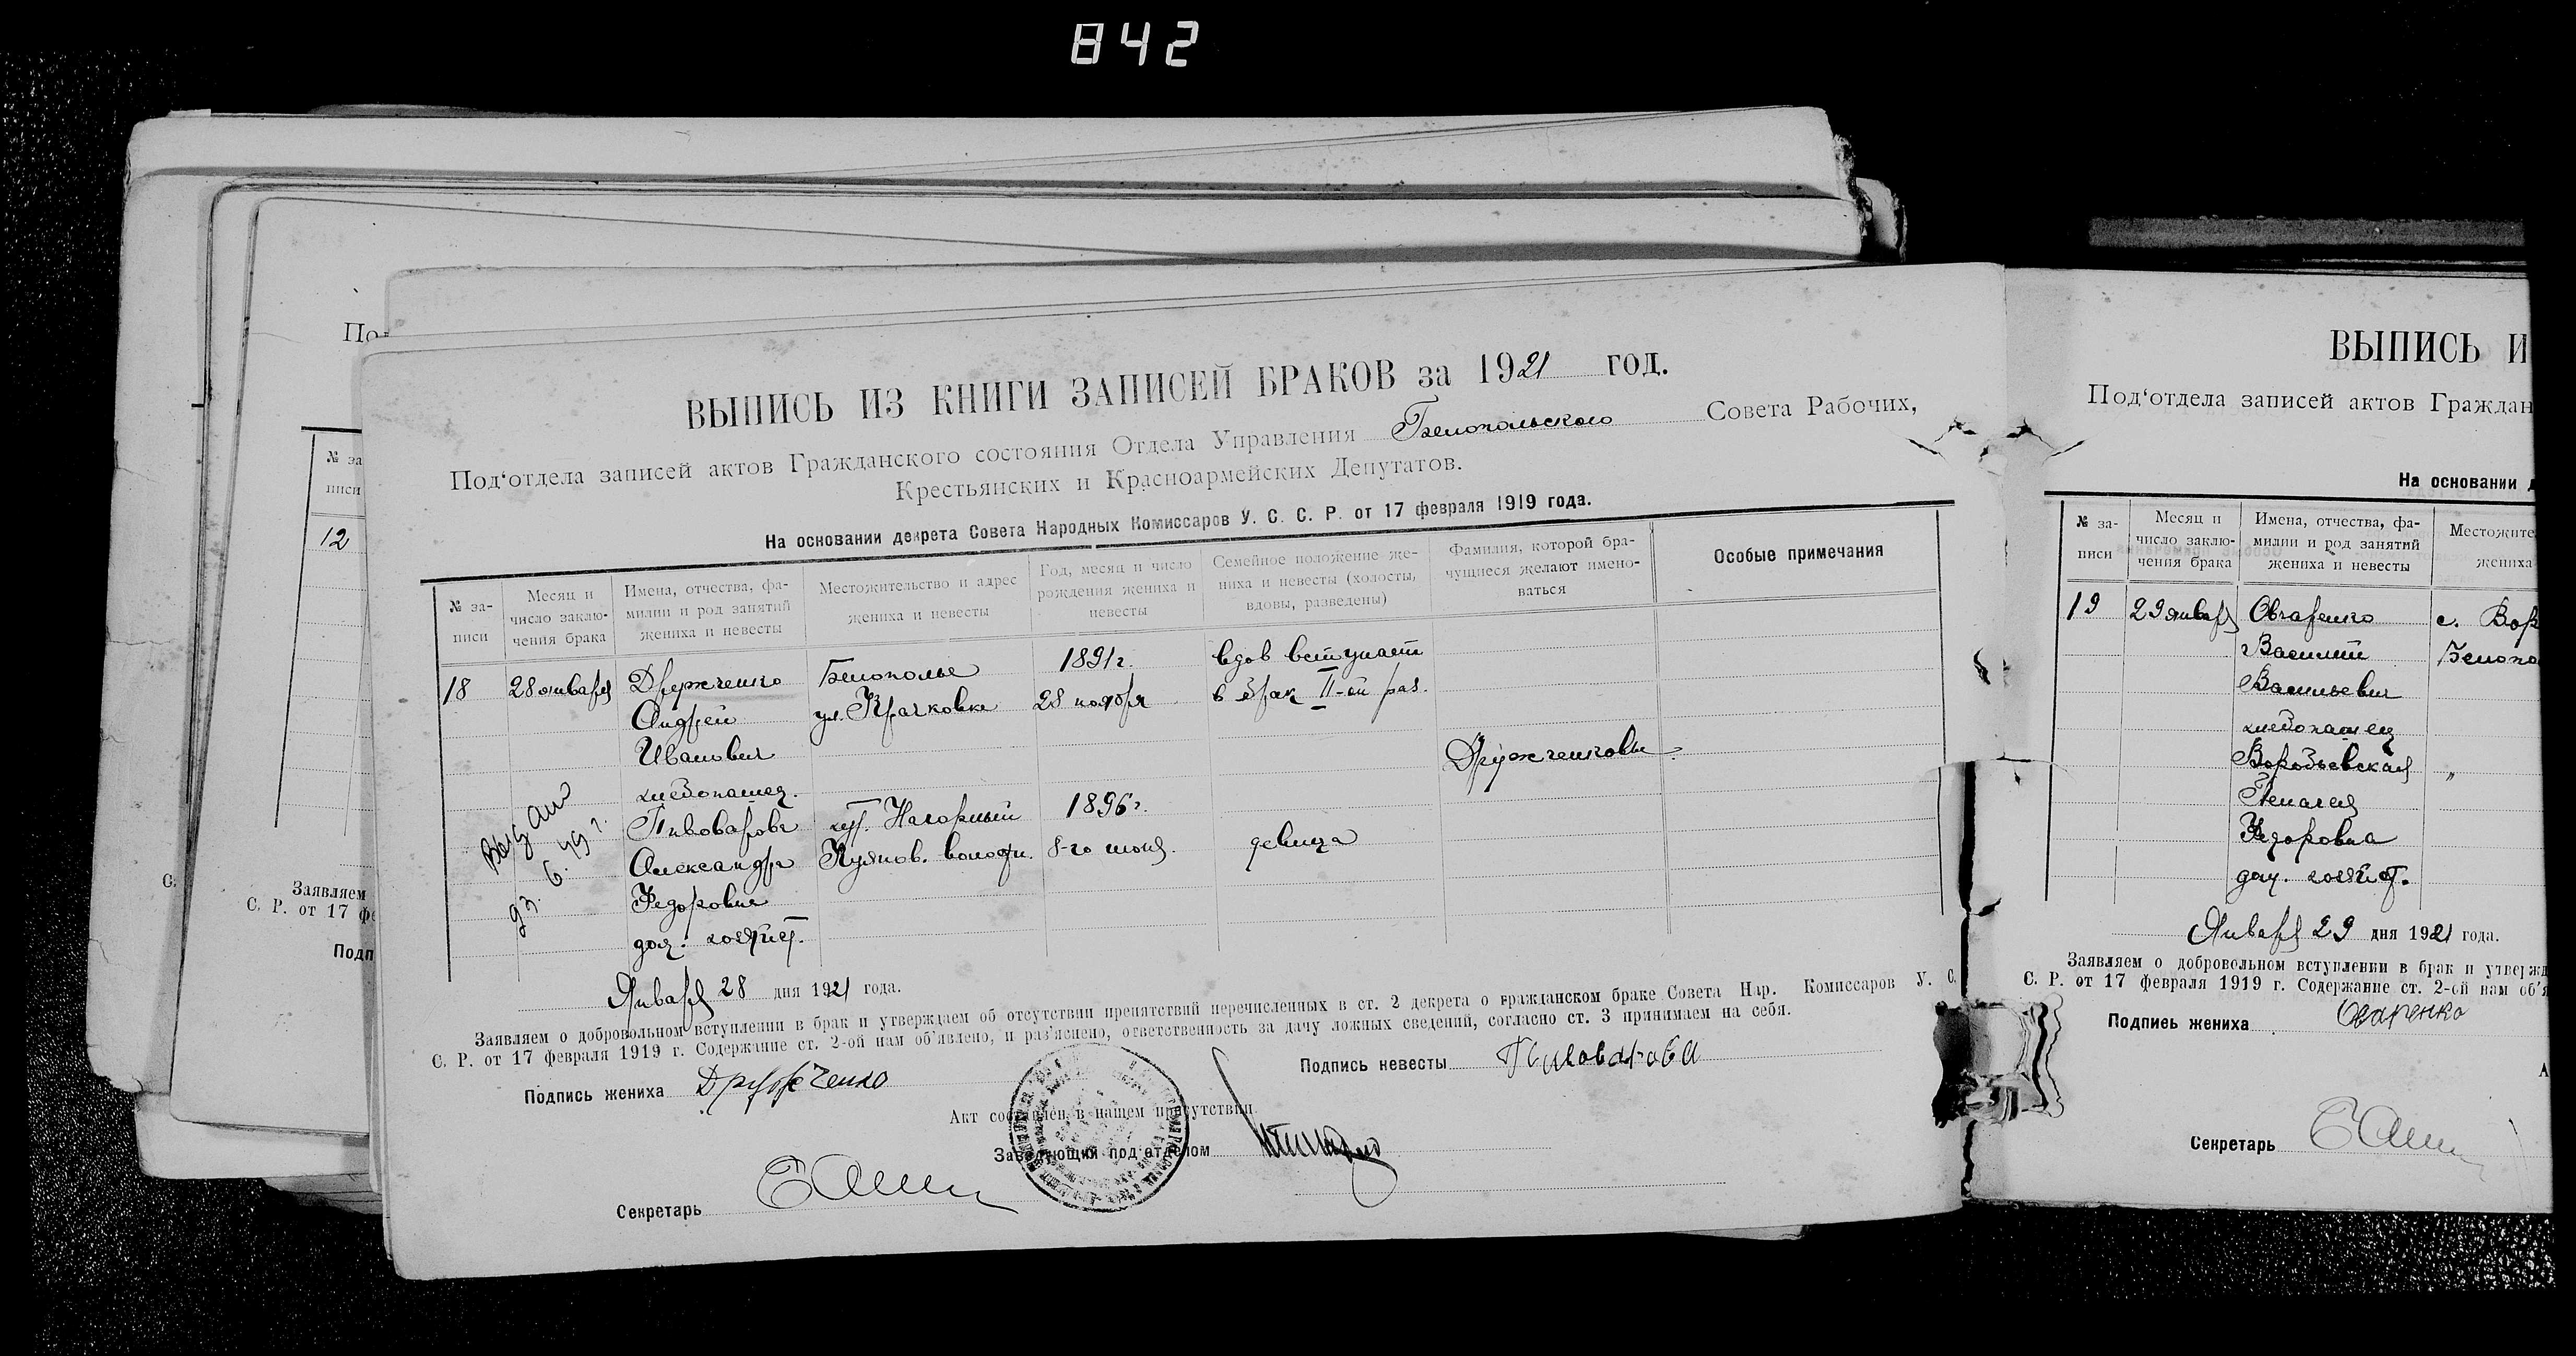 842
По
№ за
писи
12
Заявляем
С. Р. от 17 фе
Подп
С.
ВЫПИСЬ ИЗ КНИГИ ЗАПИСЕЙ БРАКОВ за 1921 год.
Под‘отдела записей актов Гражданского состояния Отдела Управления Белопольского Совета Рабочих,
Крестьянских и Красноармейских Депутатов.
На основании декрета Совета Народных Комиссаров У. С. С. Р. от 17 февраля 1919 года.
№ за-
писи
Месяц и
число заклю-
чения брака
Имена, отчества, фа-
милии и род занятий
жениха и невесты
Местожительство и адрес
жениха и невесты
Год, месяц и число
рождения жениха и
невесты
Семейное положение же-
ниха и невесты (холосты,
вдовы, разведены)
Фамилия, которой бра-
чущиеся желают имено-
ваться
Особые примечания
18
28 января
Дружченко
Андрей
Иванович
хлебопашец.
Белополье
ул. Крачковка
1891 г.
28 ноября
вдов вступает
в брак II-ой раз.
Дружченковы
Пивоварова
Александра
Федоровна
дом. хозяйст.
хут. Нагорный
волости.
1896 г.
8-го июня.
девица
Выдано
6. 49 г.
Января 28 дня 1921 года.
Заявляем о добровольном вступлении в брак и утверждаем об отсутствии препятствий перечисленных в ст. 2 декрета о гражданском браке Совета Нар. Комиссаров У. С.
С. Р. от 17 февраля 1919 г. Содержание ст. 2-ой нам об‘явлено, и раз‘яснено, ответственность за дачу ложных сведений, согласно ст. 3 принимаем на себя.
Подпись жениха Дружченко
Подпись невесты Пивоварова
Акт составлен в нашем присутствии
Заведующий под‘отделом
Секретарь
ВЫПИСЬ И
Под‘отдела записей актов Граждан
На основании д
№ за-
писи
Месяц и
число заклю-
чения брака
Имена, отчества, фа-
милии и род занятий
жениха и невесты
Местожите
жениха
19
29 января
Овчаренко
Василий
Васильевич
хлебопашец
Воробьевская
Пелагея
Федоровна
дом. хозяйст.
с. Вор
Белопо
"
Января 29 дня 1921 года.
Заявляем о добровольном вступлении в брак и утвержд
С. Р. от 17 февраля 1919 г. Содержание ст. 2-ой нам об‘я
Подпись жениха
А
Секретарь